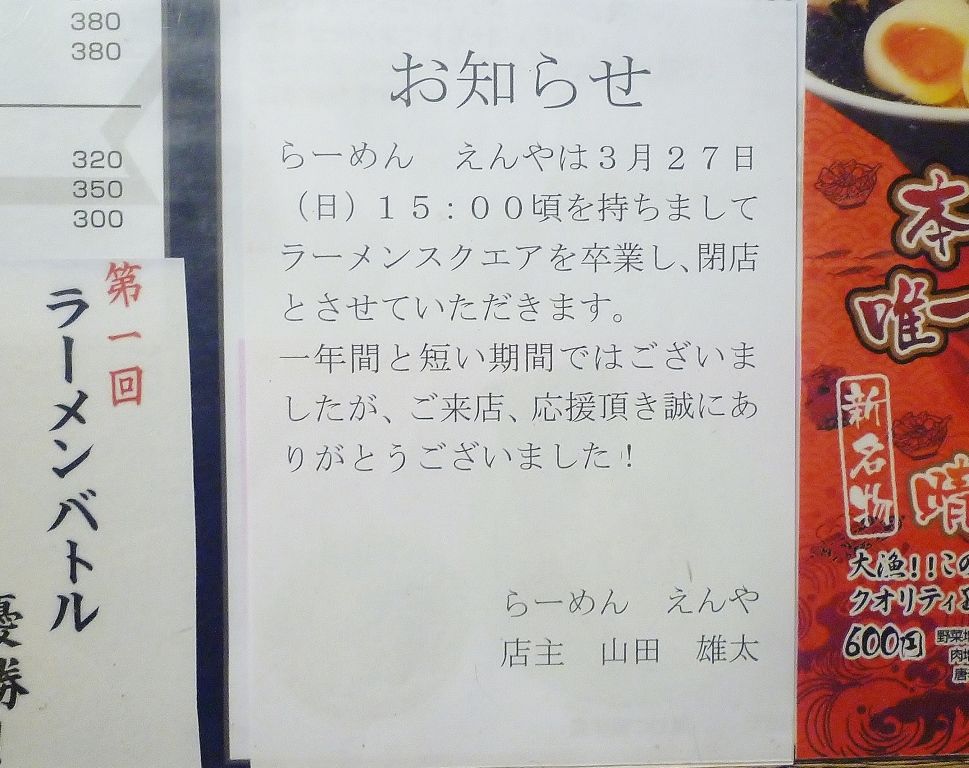 380
380
320
350
300
第一回
ラーメンバトル
優勝
お知らせ
らーめん　えんやは３月２７日
（日）１５：００頃を持ちまして
ラーメンスクエアを卒業し、閉店
とさせていただきます。
一年間と短い期間ではございま
したが、ご来店、応援頂き誠にあ
りがとうございました！
らーめん　えんや
店主　山田　雄太
本
唯一
新名物
晴
大漁!!この
クオリティ
600円
野菜
肉
唐